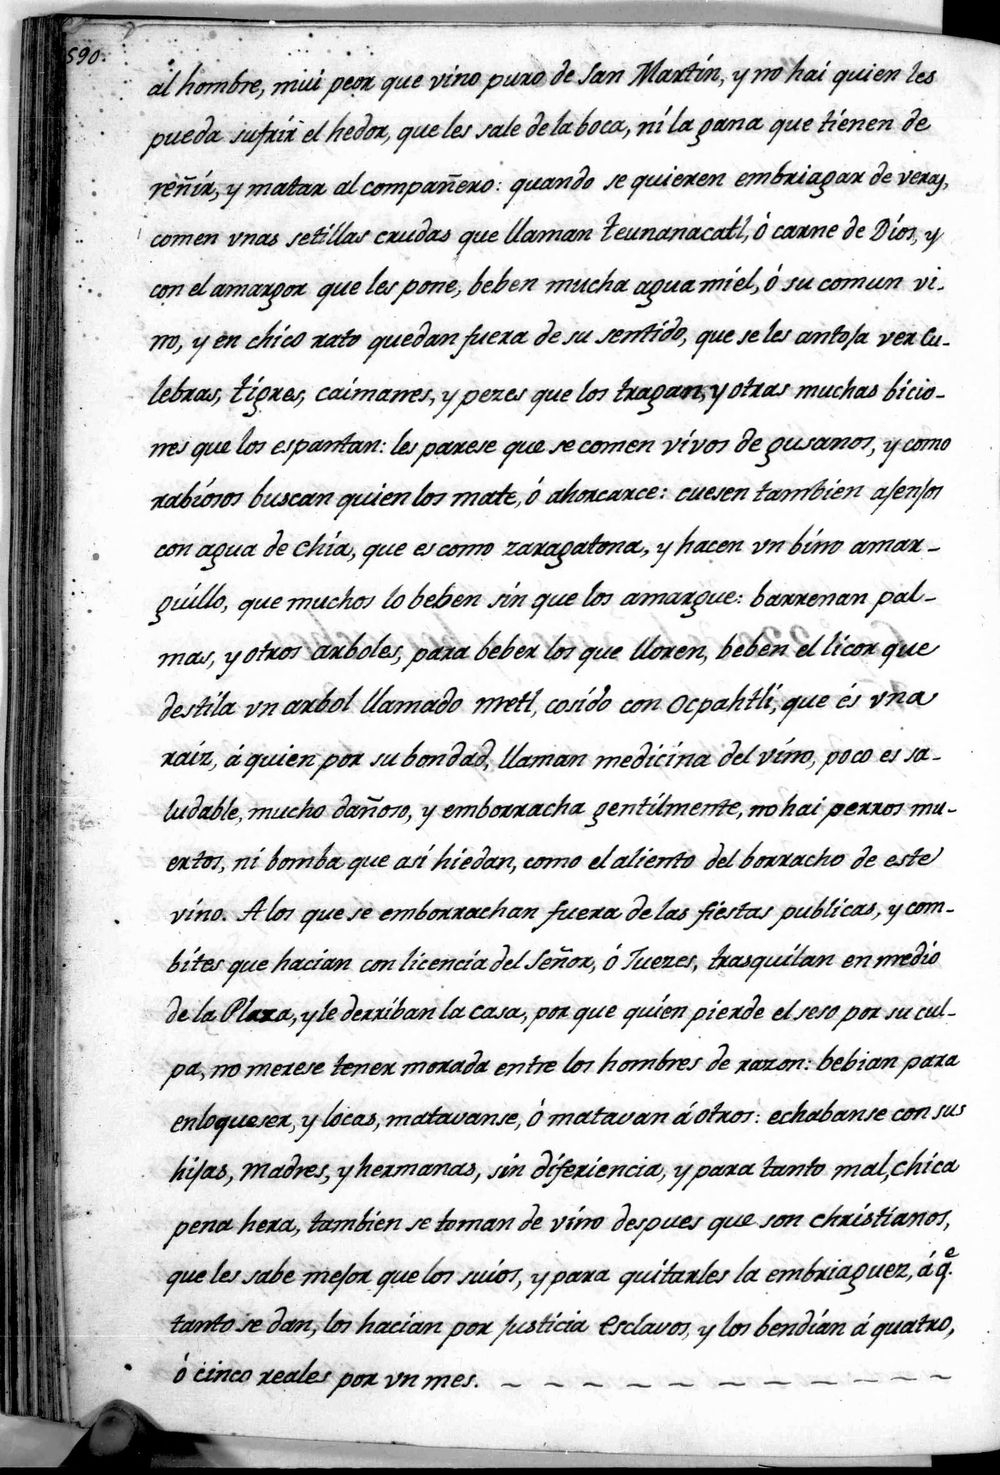 590.
al hombre, mui peor que vino puro de San Martín, y no hai quien les
pueda sufrír el hedor, que les sale de la boca, ní la gana que tienen de
reñír, y matar al compañero: quando se quieren embriagar de veras,
comen vnas setillas crudas que llaman teunanacatl, ó carne de Díos, y
con el amargor que les pone, beben mucha agua miel, ó su comun vi-
no, y en chico rato quedan fuera de su sentido, que se les antoja ver Cu-
lebras, tigres, caimanes, y pezes que los tragan, y otras muchas bicio-
nes que los espantan: les parese que se comen vivos de gusanos, y como
rabiosos buscan quien los mate, ó ahorcarce: cuesen tambien asensos
con agua de chia, que es como zaragatona, y hacen vn bino amar-
guillo, que muchos lo beben sin que los amargue: barrenan pal-
mas, y otros arboles, para beber los que lloren, beben el licor que
destila vn arbol llamado metl, cosido con Ocpahtli, que és vna
raiz, á quien por su bondad, llaman medicina del vino, poco es sa-
ludable, mucho dañoso, y emborracha gentilmente, no hai perros mu-
ertos, ni bomba que así hiedan, como el aliento del borracho de este
vino. A los que se emborrachan fuera de las fiestas publicas, y com-
bites que hacian con licencia del Señor, ó Juezes, trasquilan en medio
de la Plaza, y le derriban la casa, por que quien pierde el seso por su cul-
pa, no merese tener morada entre los hombres de razon: bebian para
enloqueser, y locas, matavanse, ó matavan á otros: echabanse con sus
hijas, Madres, y hermanas, sin diferiencia, y para tanto mal, chica
pena hera, tambien se toman de vino despues que son christianos,
que les sabe mejor que los suios, y para quitarles la embriaguez, á q.e
tanto se dan, los hacian por justicia esclavos, y los bendian á quatro,
ó cinco reales por vn mes.